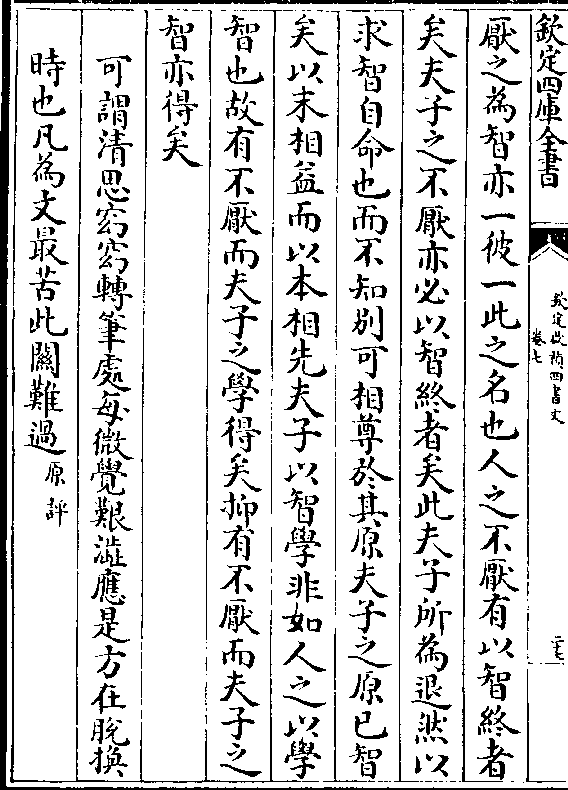 欽定四庫全書
欽定啟禎四書文
卷七
二十七
厭之為智亦一彼一此之名也人之不厭有以智終者
矣夫子之不厭亦必以智終者矣此夫子所為退然以
求智自命也而不知别可相尊於其原夫子之原已智
矣以末相益而以本相先夫子以智學非如人之以學
智也故有不厭而夫子之學得矣抑有不厭而夫子之
智亦得矣
可謂清思窈窈轉筆處每微覺艱澁應是方在脱換
時也凡為文最苦此關難過原評